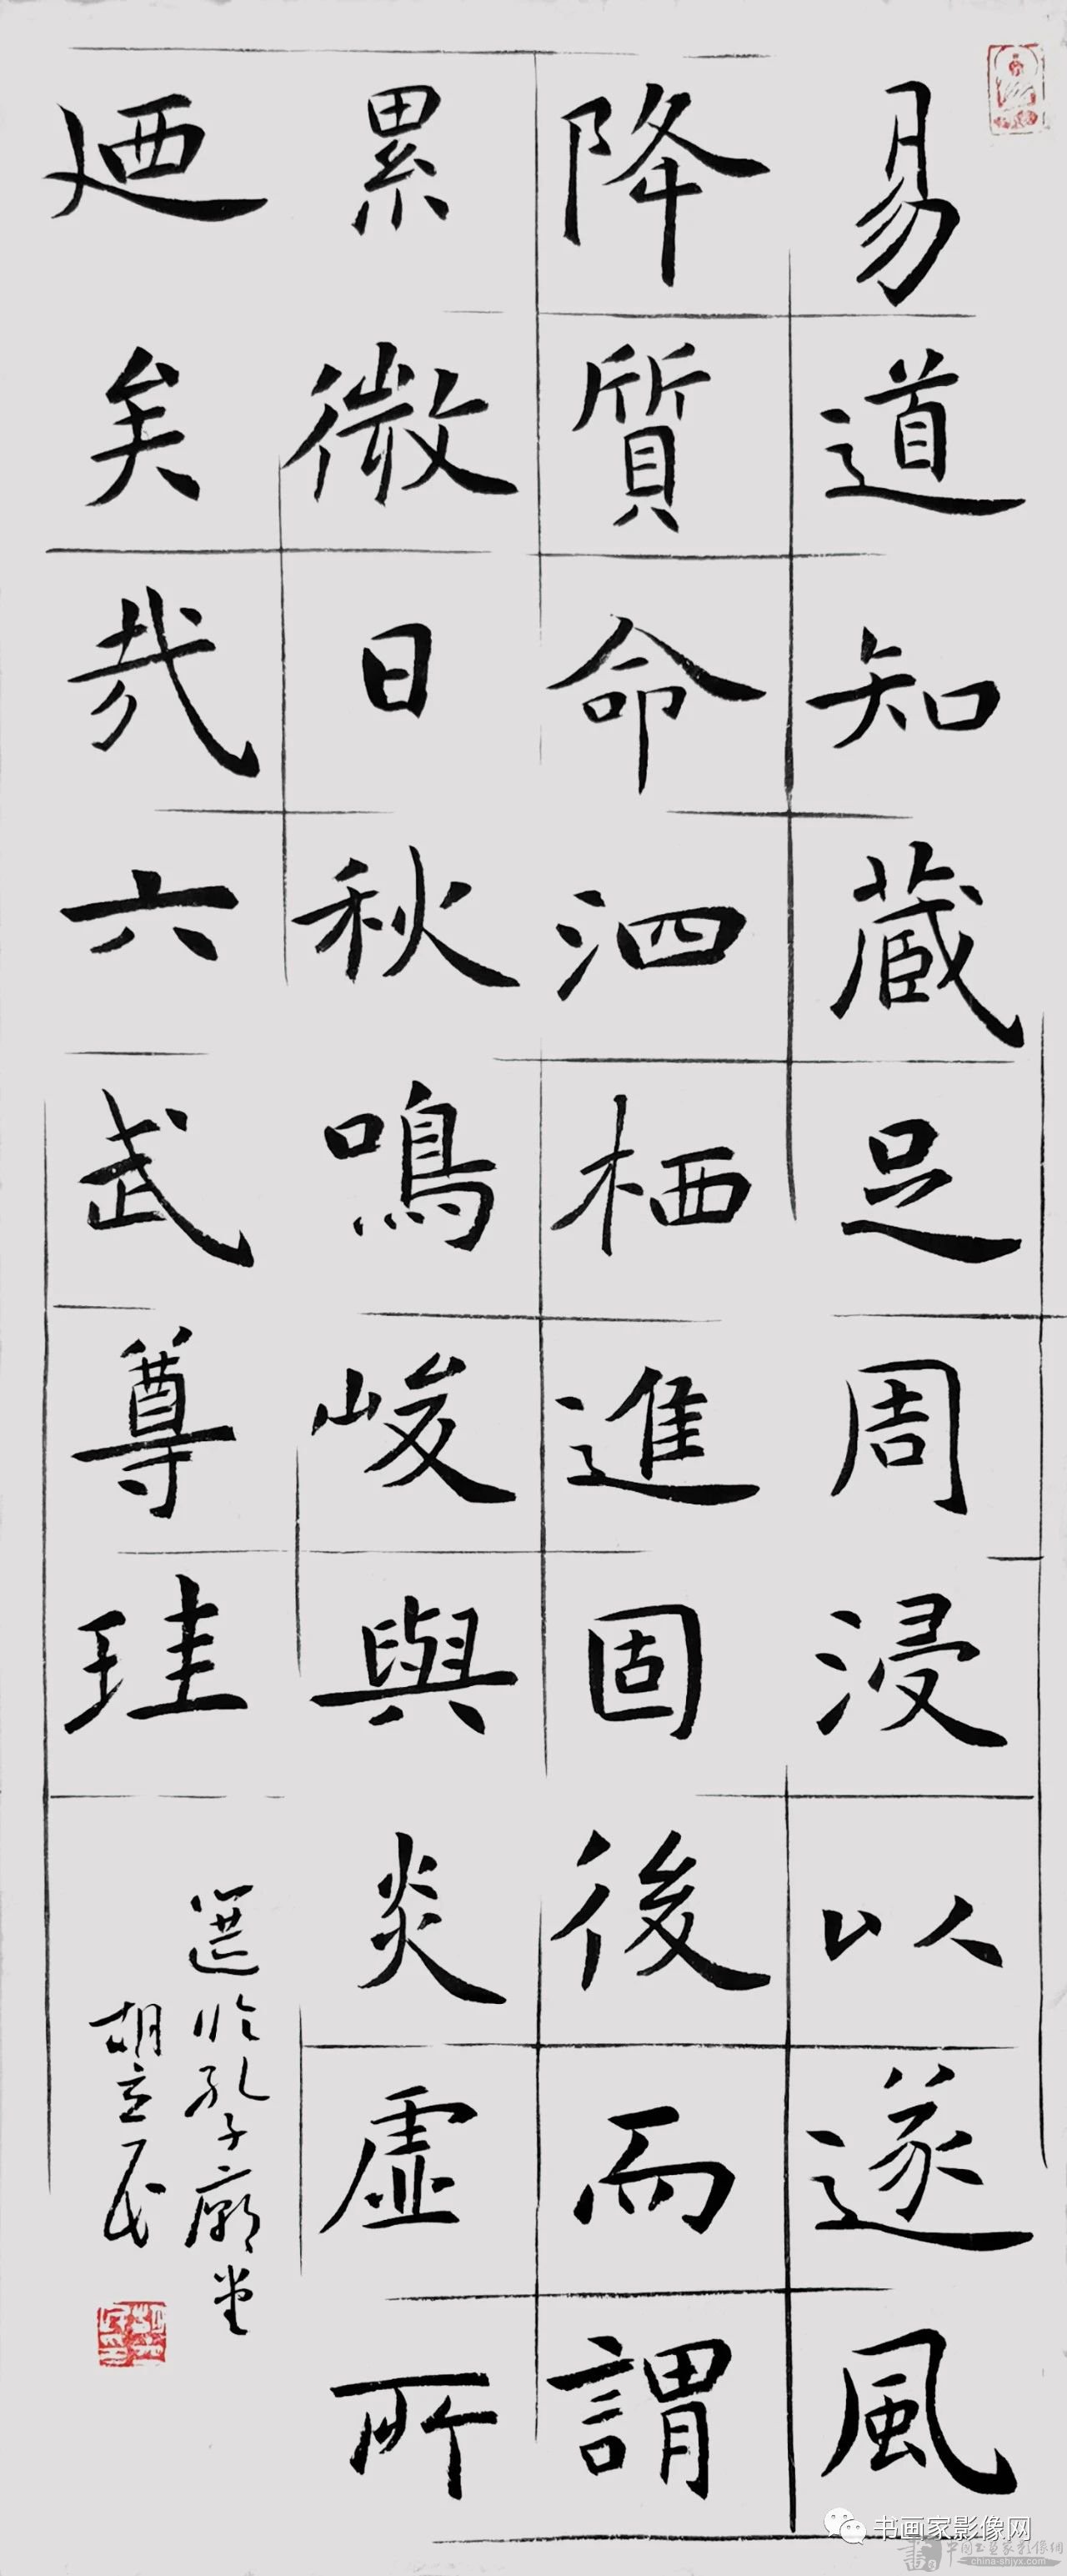 易道知藏足周浸以遂風
降質命泗栖進固後而謂
累微日秋鳴峻與炎虛所
廼矣哉六武尊珪
選臨孔子廟堂
胡立民
书画家影像网
china-shjyx.com